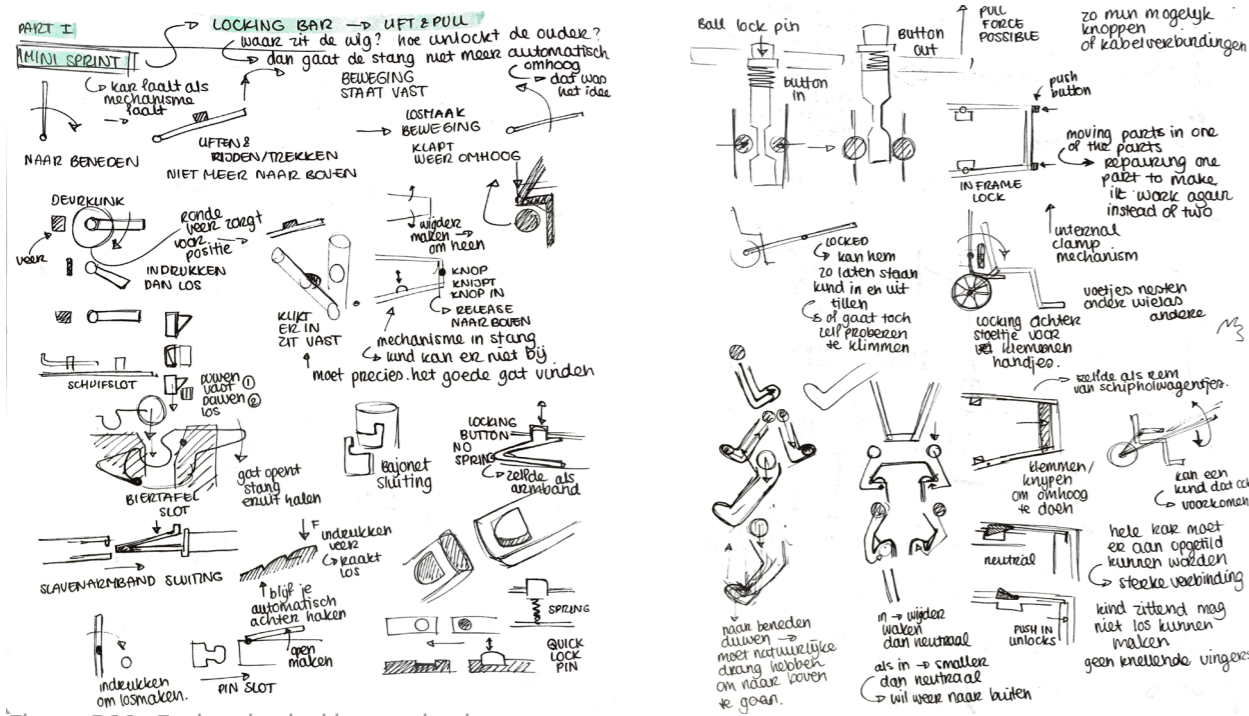 PART I
LOCKING BAR → LIFT & PULL
MINI SPRINT
waar zit de wig? hoe unlockt de ouder?
dan gaat de stang niet meer automatisch
omhoog
dat was
het idee
kar faalt als
mechanisme
faalt
BEWEGING
STAAT VAST
NAAR BENEDEN
LIFTEN &
RIJDEN/TREKKEN
NIET MEER NAAR BOVEN
LOSMAAK
BEWEGING
KLAPT
WEER OMHOOG
DEURKLINK
veer
ronde
veer zorgt
voor
positie
INDRUKKEN
DAN LOS
wijder
maken
om heen
KLIKT
ER IN
ZIT VAST
KNOP
KNIJPT
KNOP IN
RELEASE
NAAR BOVEN
mechanisme in stang
kind kan er niet bij
moet precies het goede gat vinden
SCHUIFSLOT
DUWEN
VAST ①
DUWEN
LOS ②
BIERTAFEL
SLOT
gat opent
stang
eruit halen
Bajonet
sluiting
LOCKING
BUTTON
NO
SPRING
zelfde als
armband
SLAVENARMBAND SLUITING
F
indrukken
veer
raakt
los
blijf je
automatisch
achter haken
SPRING
indrukken
om losmaken.
PIN SLOT
open
maken
QUICK
LOCK
PIN
Ball lock pin
button
in
Button
out
PULL
FORCE
POSSIBLE
zo min mogelijk
knoppen
of kabelverbindingen
push
button
IN FRAME
LOCK
moving parts in one
of the parts
repairing one
part to make
it work again
instead of two
internal
clamp
mechanism
LOCKED
kan hem
zo laten staan
kind in en uit
tillen
of gaat toch
zelf proberen
te klimmen
locking achter
stoeltje voor
klemmenen
handjes.
voetjes nesten
onder wielas
andere
zelfde als rem
van schipholwagentjes.
klemmen/
knijpen
om omhoog
te doen
kan een
kind dat
voorkomen
neutral
hele kar moet
er aan opgetild
kunnen worden
sterke verbinding
PUSH IN
UNLOCKS
kind zittend mag
niet los kunnen
maken
geen knellende vingers
naar beneden
duwen →
moet natuurlijke
drang hebben
om naar boven
te gaan.
in → wijder
maken
dan neutraal
als in → smaller
dan neutraal
wil weer naar buiten